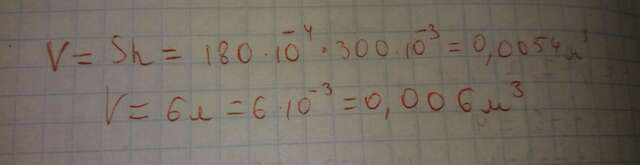 V = Sh = 180·10⁻⁴·300·10⁻³ = 0,0054 м³
V = 6л = 6·10⁻³ = 0,006 м³